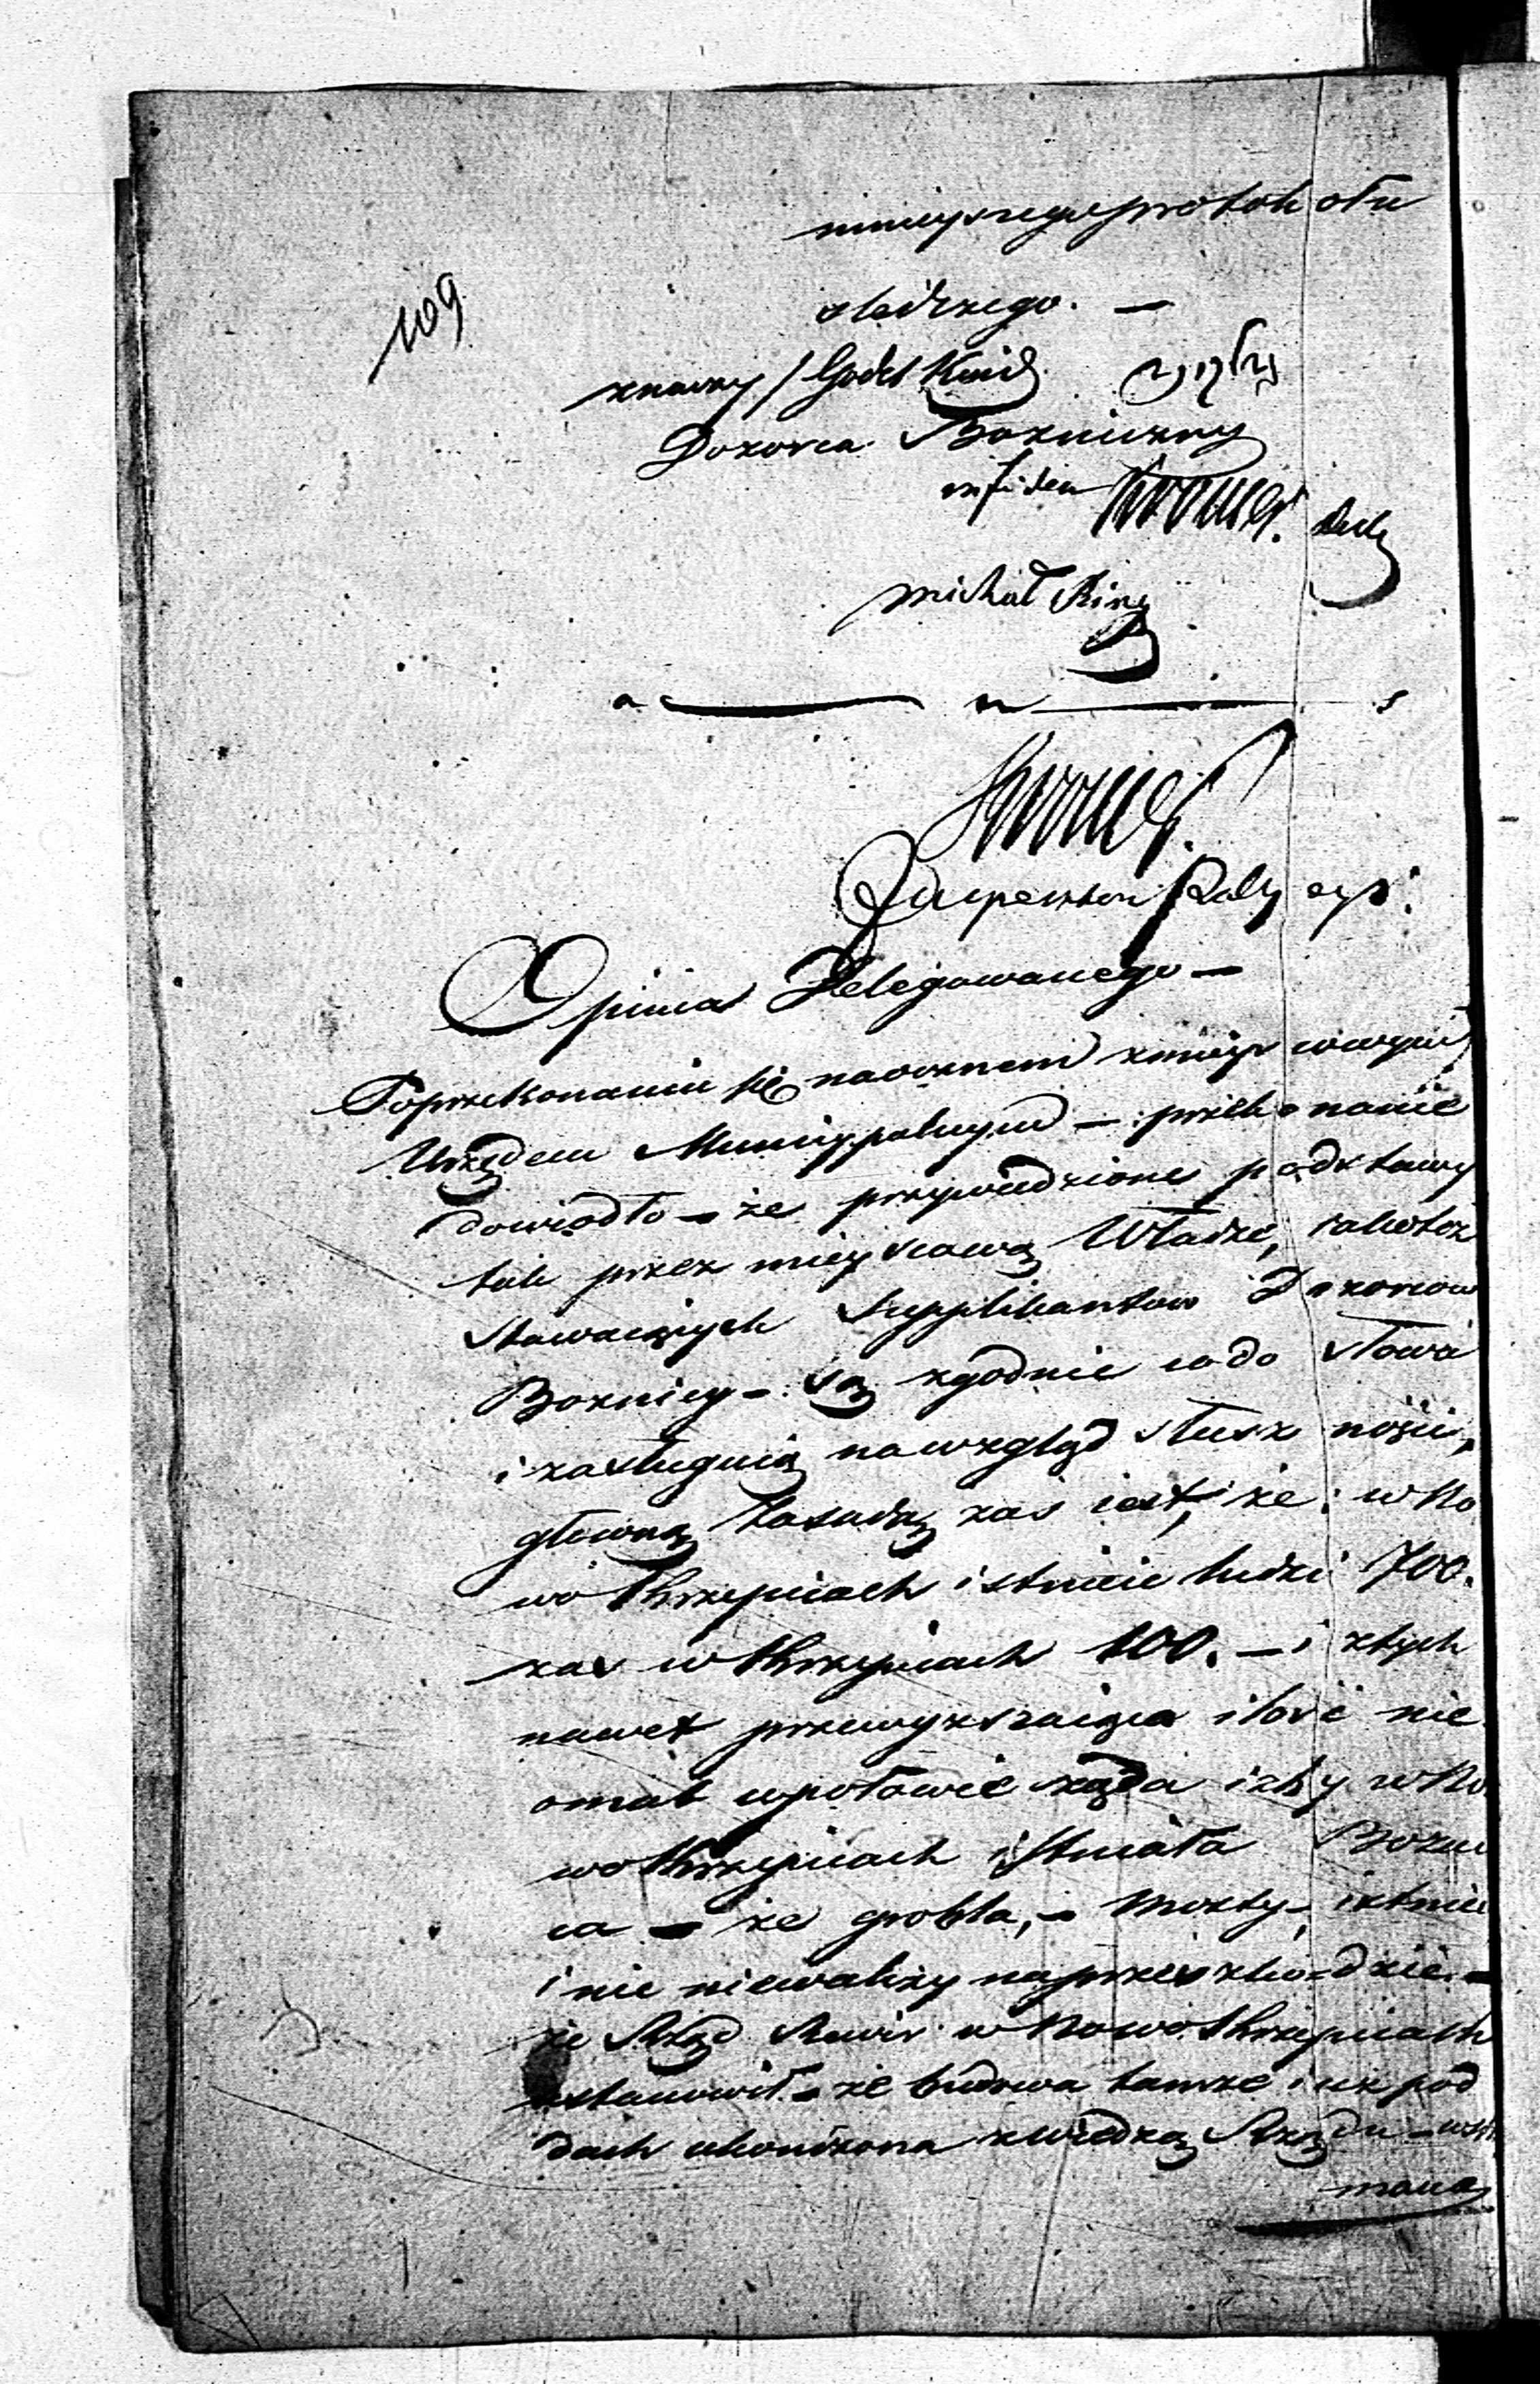 109
ninieyszego protokołu
śledczego. —
znawcy / Godel
Dozorca Bożniczny
in fidem Kromer.
Michał Ring
Kromer.
Inspektor Policyi.
Opinia Delegowanego —
Po przekonaniu się naocznem z mieyscowym
Urzędem Municypalnym — przekonanie
dowiodło — że przywiedzione podstawy
tak przez mieyscową Władzę, iako też
stawaiących Supplikantów Dozorców
Bożnicy — są zgodnie co do słowa
i zasługuią na wzgląd słuszności,
główną zasadą zaś iest, że: w No
wo Krzepicach istnieie ludzi 700.
zaś w Krzepicach 100. — i z tych
nawet przewyższaiąca ilość nie
omal w połowie żąda iżby w No
wo Krzepicach istniała Bożni
ca — że grobla, — mosty, istnie
i nic nie należy na przeszkodzie. —
że Rząd Rewir w Nowo Krzepicach
ustanowił — że budowa tamże iuż pod
dach ukończona z wiedzą Rządu —
mana